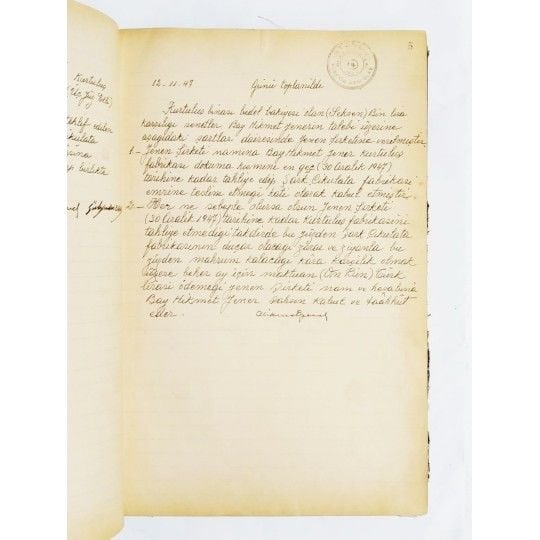 5
12-11-47 Günü toplanıldı
Kurtuluş binası bedel bakiyesi olan (Seksen) Bin lira
karşılığı senetler Bay Hikmet Jenerin talebi üzerine
aşağıdaki şartlar dairesinde Jener Şirketine verilmiştir
1.- Jener Şirketi namına Bay Hikmet Jener Kurtuluş
fabrikası dokuma kısmını en geç (30 Aralık 1947)
tarihine kadar tahliye edip Şark Çikulata fabrikası
emrine teslim etmeği kati olarak kabul etmiştir.
2.- Her ne sebeple olursa olsun Jener Şirketi
(30 Aralık 1947) tarihine kadar Kurtuluş fabrikasını
tahliye etmediği takdirde bu yüzden Şark Çikulata
fabrikasının duçar olacağı zarar ve ziyanla bu
yüzden mahrum kalacağı kâra karşılık olmak
üzere beher ay için maktuan (On Bin) Türk
lirası ödemeği Jener Şirketi nam ve hesabına
Bay Hikmet Jener şahsen kabul ve taahhüt
eder.
Kurtuluş